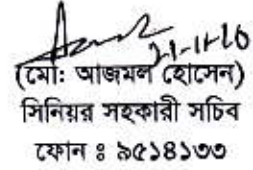 ২১-১১-১৬
(মো: আজমল হোসেন)
সিনিয়র সহকারী সচিব
ফোন ঃ ৯৫১৪১৩৩